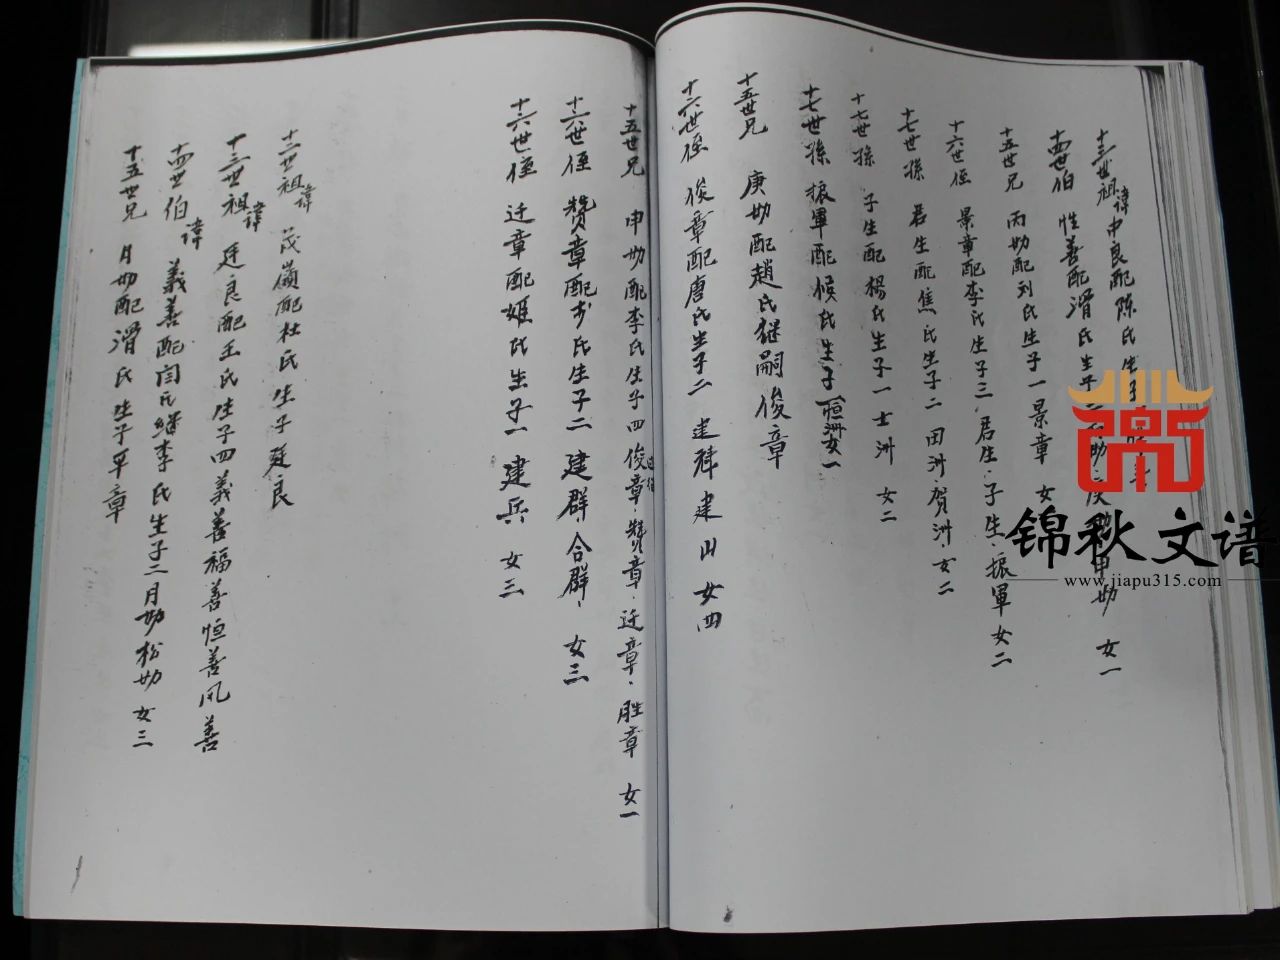 十三世祖諱中良配陈氏生子
十四世伯 性善配滑氏生子 申劝 女一
十五世兄 丙劝配刘氏生子一景章 女
十六世侄 景章配李氏生子三 君生、子生、振軍 女二
十七世孫 君生配焦氏生子二 田洲、贺洲、女二
十七世孫 子生配楊氏生子一 士洲 女二
十七世孫 振軍配候氏生子一恒洲 女一
十五世兄 庚劝配趙氏継嗣俊章
十六世侄 俊章配唐氏生子二 建群 建山 女四
十五世兄 申劝配李氏生子四 俊章、赞章、迁章、胜章 女一
十六世侄 赞章配步氏生子二 建群、合群、女三
十六世侄 迁章配姬氏生子一 建兵 女三
十二世祖諱 茂嶺配杜氏生子廷良
十三世祖諱 廷良配王氏生子四 義善福善恒善風善
十四世伯諱 義善配闫氏継李氏生子二月劝松劝 女三
十五世兄 月劝配滑氏生子平章
锦秋文谱
www.jiapu315.com